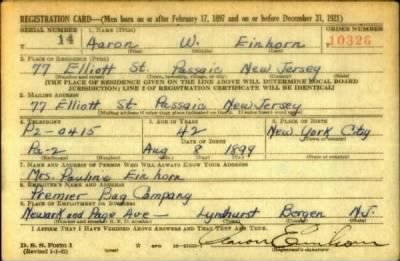 REGISTRATION CARD—(Men born on or after February 17, 1897 and on or before December 31, 1921)
SERIAL NUMBER 1. NAME (Print) ORDER NUMBER
14 Aaron W. Einhorn 10326
(First) (Middle) (Last)
2. PLACE OF RESIDENCE (Print)
77 Elliott St. Passaic New Jersey
(Number and street) (Town, township, village, or city) (County) (State)
[THE PLACE OF RESIDENCE GIVEN ON THE LINE ABOVE WILL DETERMINE LOCAL BOARD
JURISDICTION; LINE 2 OF REGISTRATION CERTIFICATE WILL BE IDENTICAL]
3. MAILING ADDRESS
77 Elliott St. Passaic New Jersey
[Mailing address if other than place indicated on line 2. If same insert word same]
4. TELEPHONE 5. AGE IN YEARS 6. PLACE OF BIRTH
P2-0415 42 New York City
DATE OF BIRTH (Town or county)
Pa-2 Aug 8 1899
(Exchange) (Number) (Mo.) (Day) (Yr.) (State or country)
7. NAME AND ADDRESS OF PERSON WHO WILL ALWAYS KNOW YOUR ADDRESS
Mrs. Pauline Einhorn
8. EMPLOYER'S NAME AND ADDRESS
Premier Bag Company
9. PLACE OF EMPLOYMENT OR BUSINESS
Newark and Page Ave — Lyndhurst Bergen N.J.
(Number and street or R. F. D. number) (Town) (County) (State)
I AFFIRM THAT I HAVE VERIFIED ABOVE ANSWERS AND THAT THEY ARE TRUE.
D. S. S. Form 1
(Revised 1-1-42) GPO
Aaron Einhorn
(Registrant's signature)